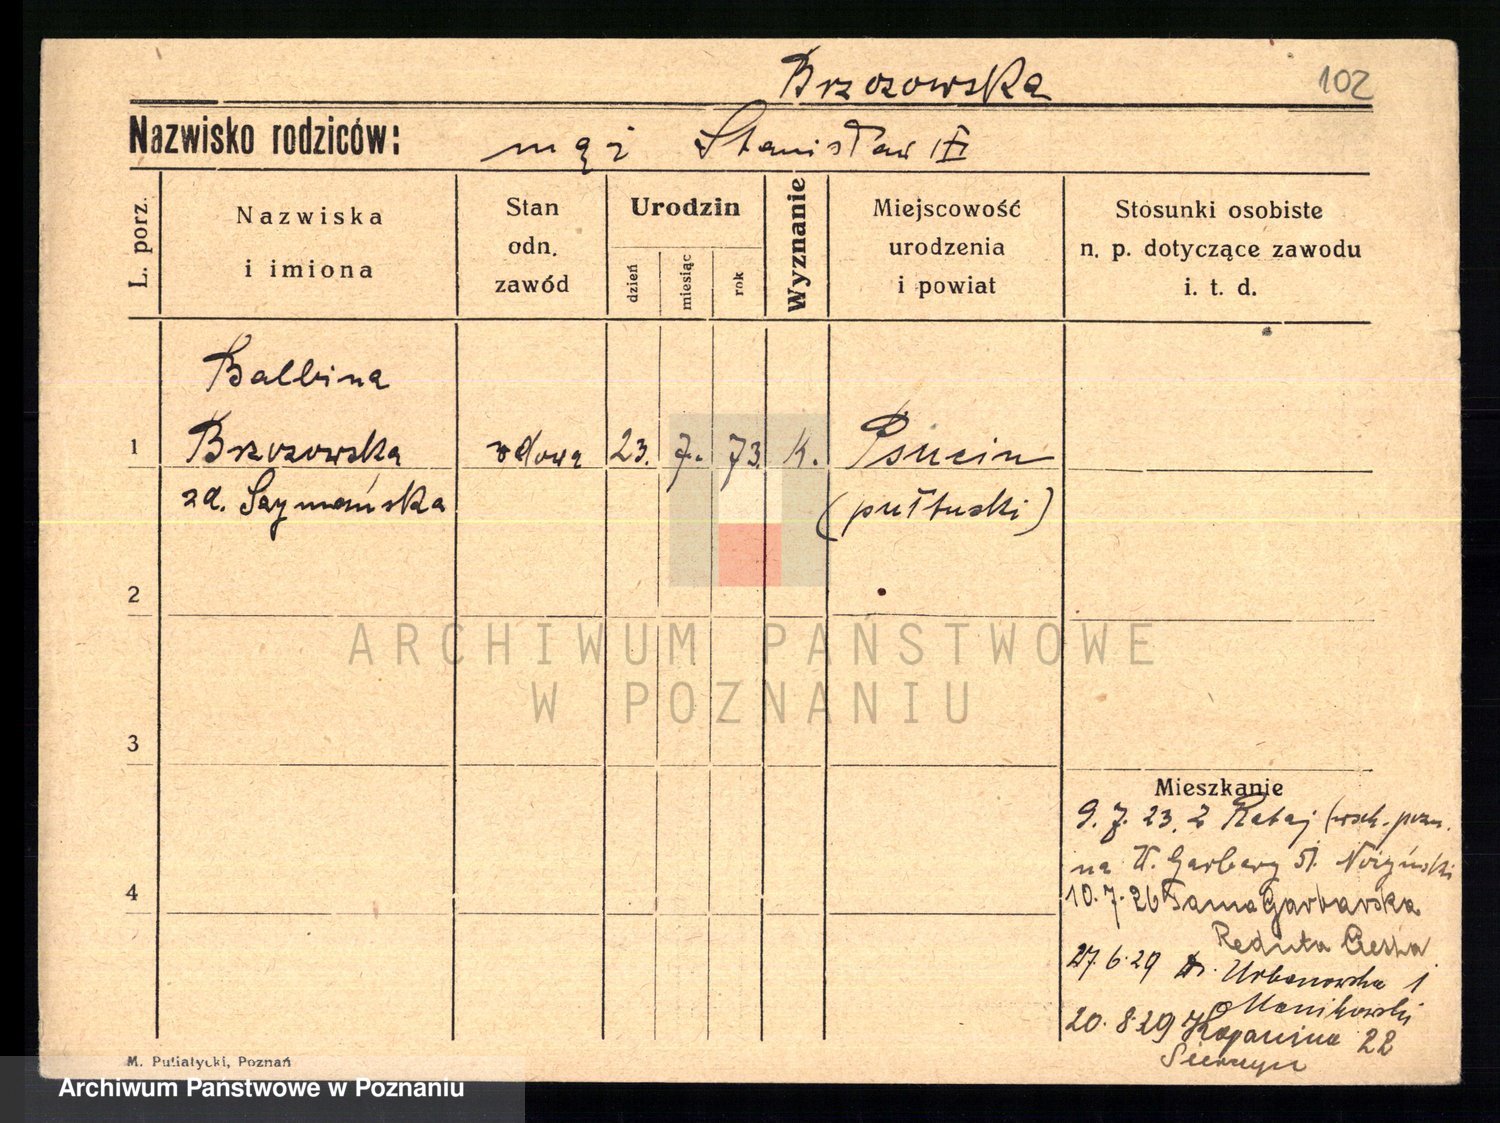 Brzozowska
102
Nazwisko rodziców: mąż Stanisław
L. porz.
Nazwiska
i imiona
Stan
odn.
zawód
Urodzin
dzień
miesiąc
rok
Wyznanie
Miejscowość
urodzenia
i powiat
Stosunki osobiste
n. p. dotyczące zawodu
i. t. d.
Balbina
1 Brzozowska wdowa 23. 7. 73. k. Psucin
zd. Szymańska (pułtuski)
2
3
4
Mieszkanie
9. 7. 23. z Rataj
na W. Garbary 51. Nożyński
10. 7. 26 Tama Garbarska
Reduta
27. 6. 29 Urbanowska 1
Manikowski
20. 8. 29 22
M. Putiatycki, Poznań
ARCHIWUM PAŃSTWOWE
W POZNANIU
Archiwum Państwowe w Poznaniu